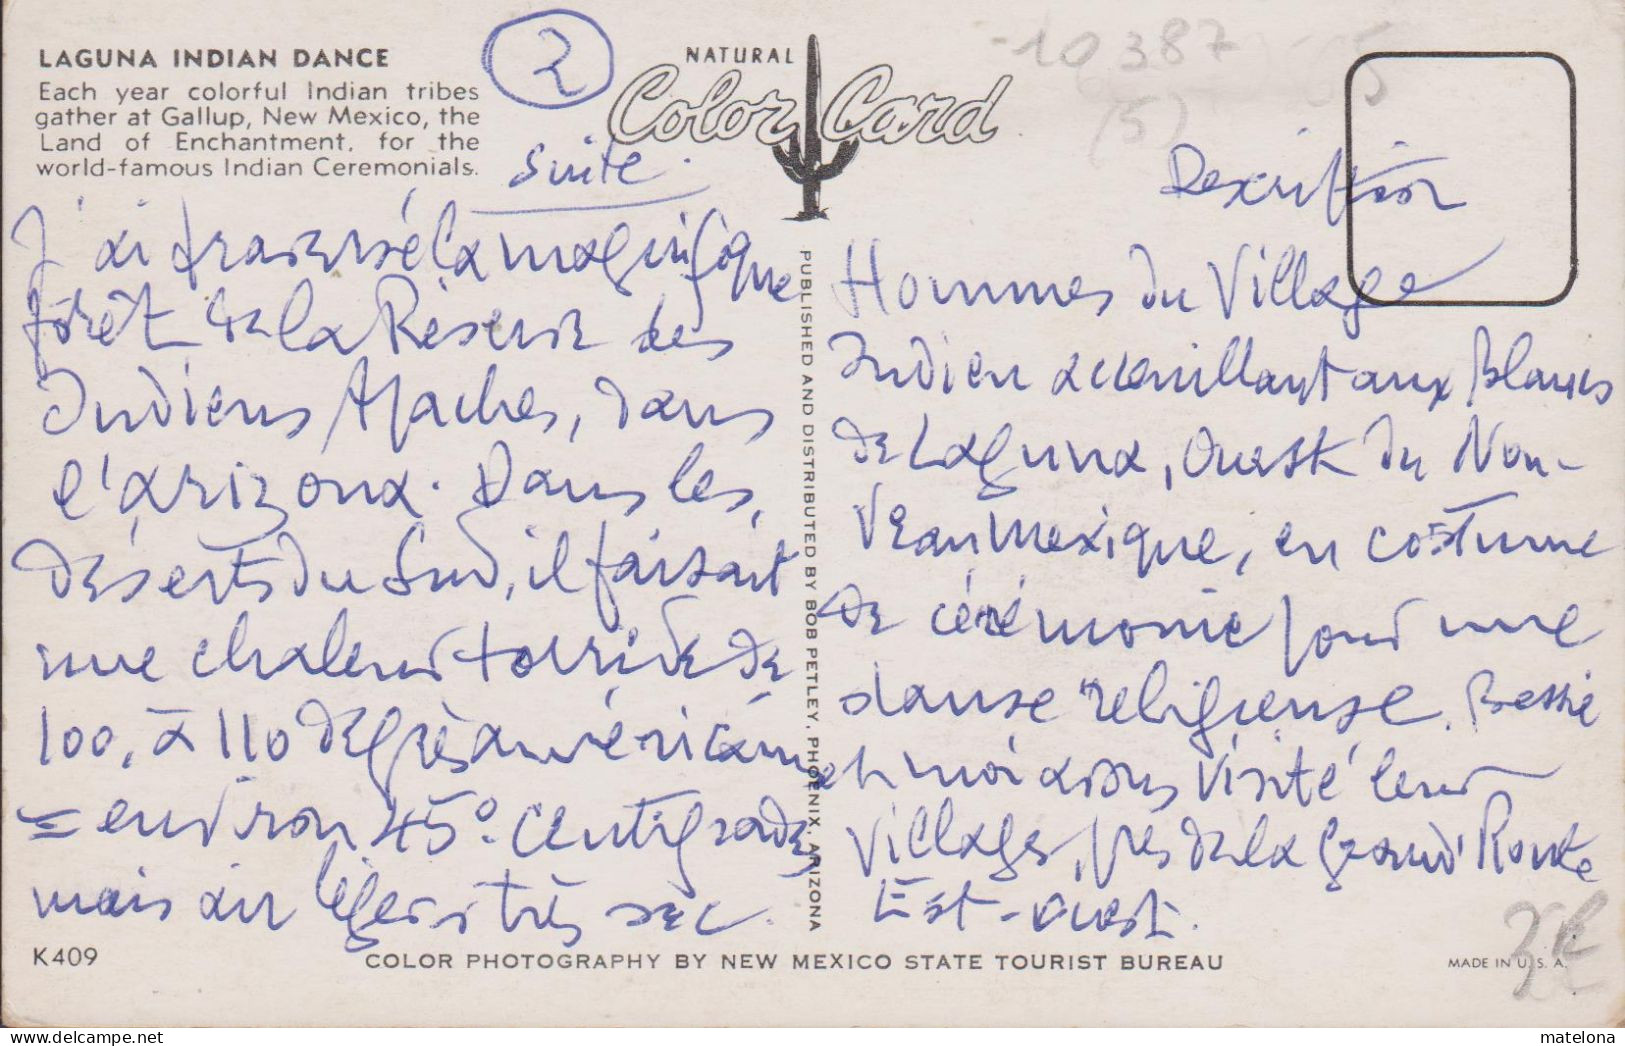 LAGUNA INDIAN DANCE
Each year colorful Indian tribes
gather at Gallup, New Mexico, the
Land of Enchantment, for the
world-famous Indian Ceremonials.
2
suite.
J'ai traversé la magnifique
forêt de la Réserve des
Indiens Apaches, dans
l'Arizona. Dans les
déserts du Sud, il faisait
une chaleur torride de
100, à 110 degrés américains
= environ 45° centigrades
mais air léger et très sec.
K409
NATURAL
Color Card
PUBLISHED AND DISTRIBUTED BY BOB PETLEY, PHOENIX, ARIZONA
-10387
(5)
Description
Hommes du Village
Indien accueillant aux Blancs
de Laguna, Ouest du Nou-
veau Mexique, en costume
de cérémonie pour une
danse religieuse. Bessie
et moi avons visité leur
village, près de la Grand'Route
Est-Ouest.
COLOR PHOTOGRAPHY BY NEW MEXICO STATE TOURIST BUREAU
MADE IN U. S. A.
matelona